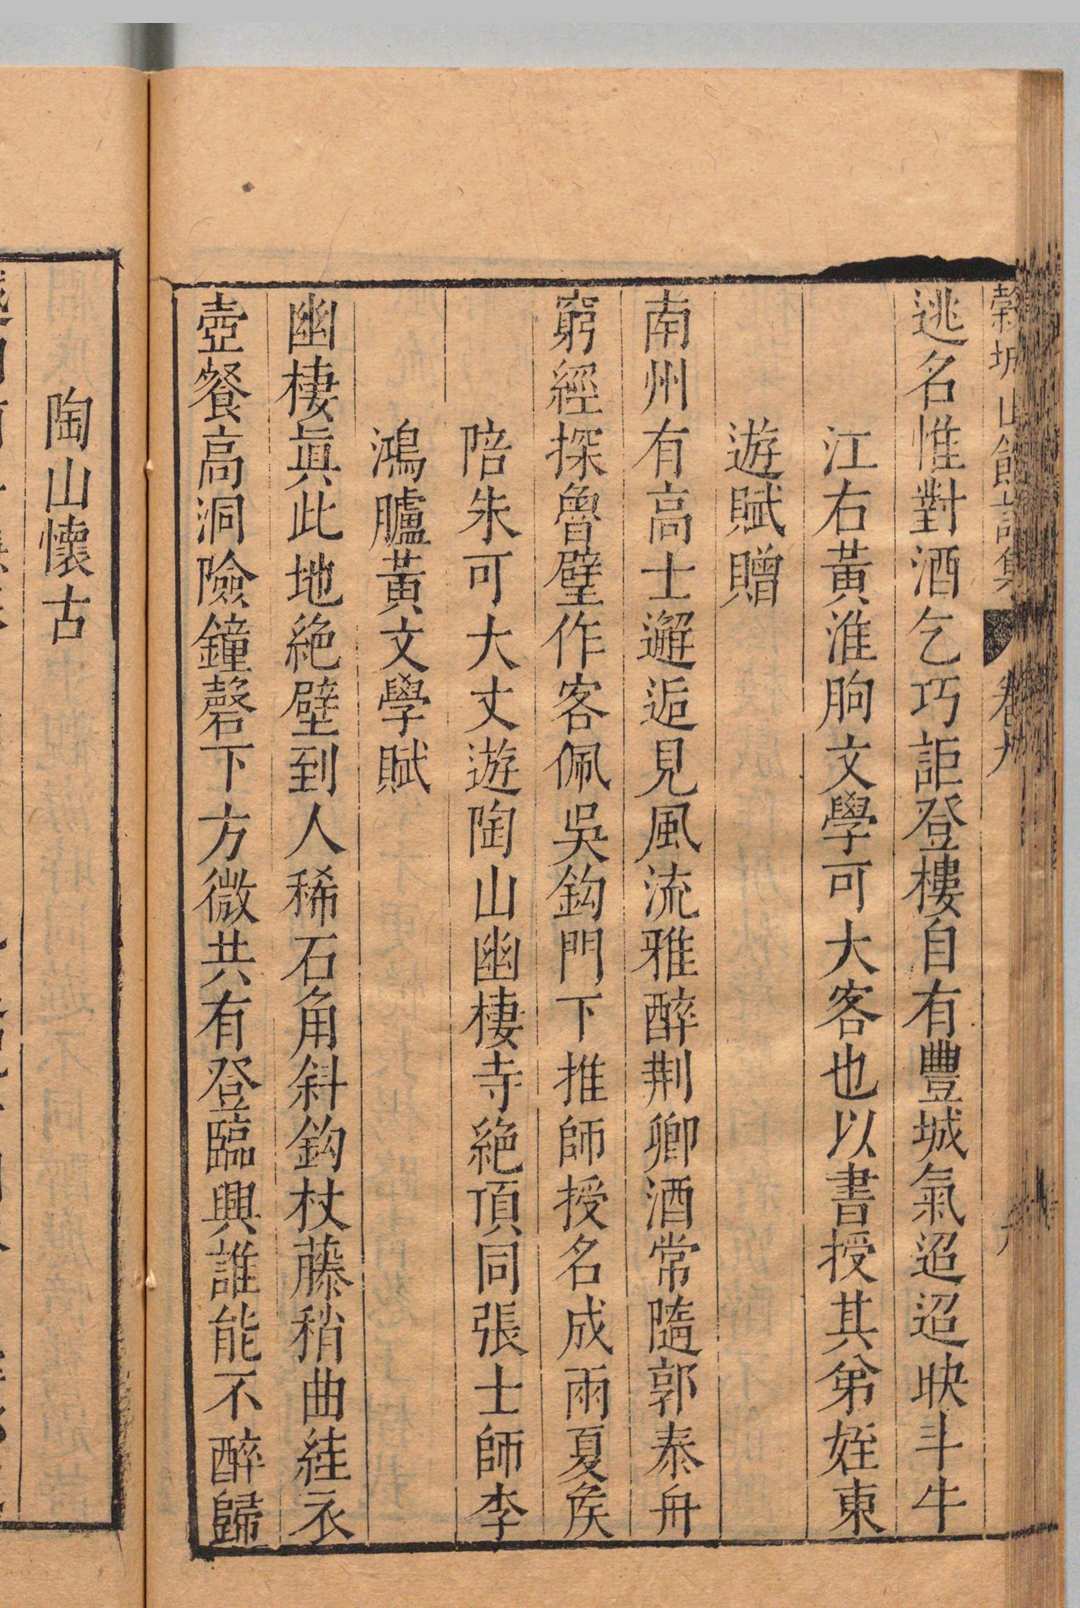 穀城山館詩集 卷九
逃名惟對酒乞巧詎登樓自有豐城氣迢迢映斗牛
江右黃淮朐文學可大客也以書授其弟姪東
遊賦贈
南州有高士邂逅見風流雅醉荆卿酒常隨郭泰舟
窮經探魯壁作客佩吳鈎門下推師授名成兩夏侯
陪朱可大丈遊陶山幽棲寺絶頂同張士師李
鴻臚黃文學賦
幽棲眞此地絶壁到人稀石角斜鈎杖藤稍曲絓衣
壺餐高洞險鐘磬下方微共有登臨興誰能不醉歸
陶山懷古